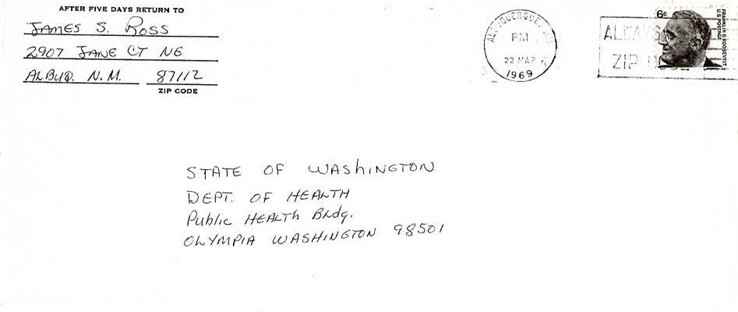 AFTER FIVE DAYS RETURN TO
JAMES S. ROSS
2907 JANE CT NE
ALBUQ. N.M. 87112
ZIP CODE
ALBUQUERQUE,
PM
22 MAR
1969
ALWAYS
ZIP CODE
6¢
FRANKLIN D. ROOSEVELT
U.S. POSTAGE
STATE OF WASHINGTON
DEPT. OF HEALTH
Public HEALTH Bldg.
OLYMPIA WASHINGTON 98501